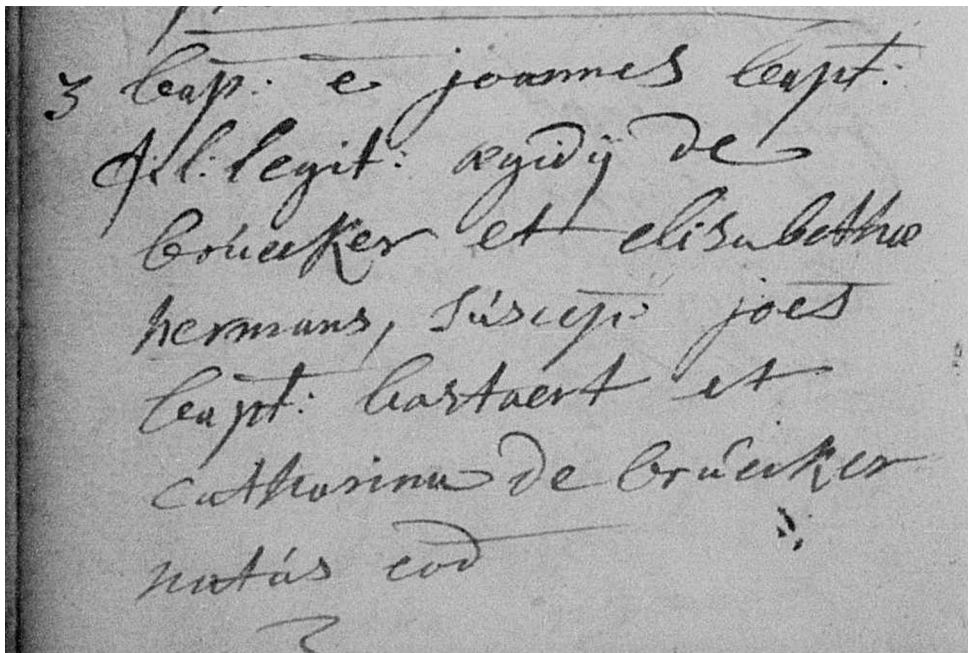 3 bap: e joannes bapt:
fil: legit: ægidij de
brúecker et elisabethæ
hermans, súscep: joes
bapt: bastaert et
catharina de brúecker
natús eod